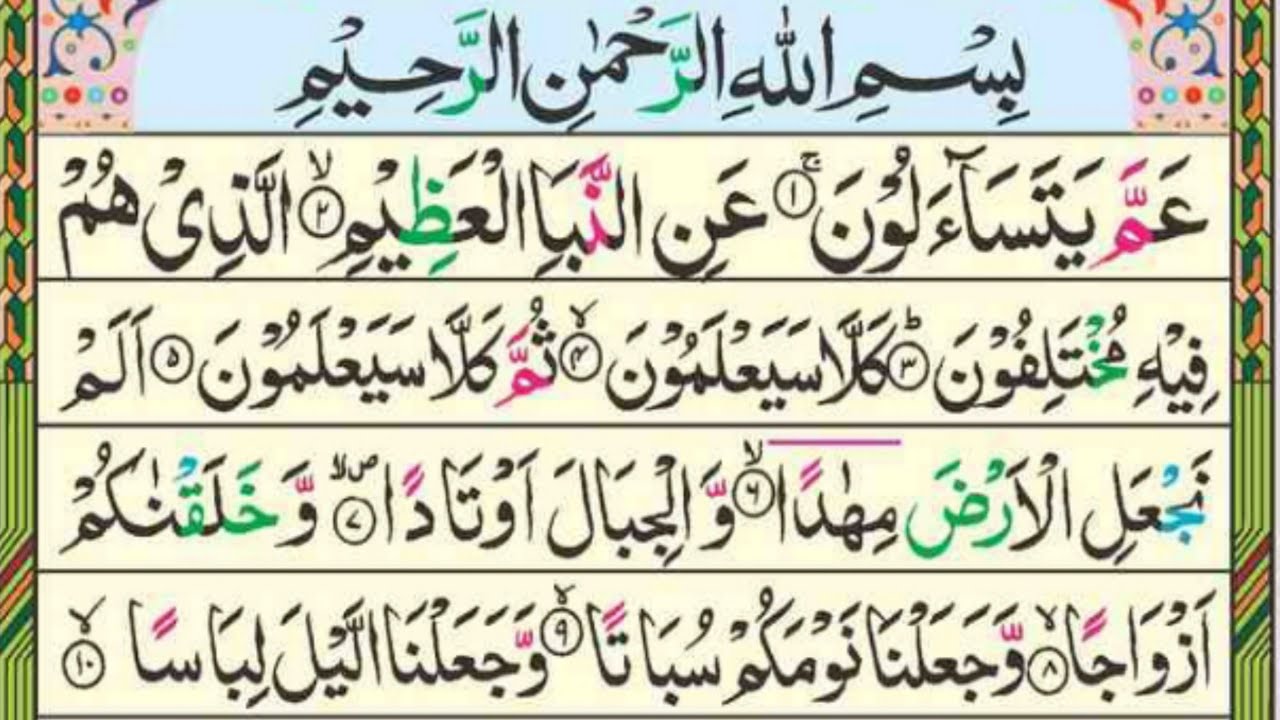 بِسْمِ اللّٰهِ الرَّحْمٰنِ الرَّحِيْمِ
عَمَّ يَتَسَآءَلُوْنَ ۚ﴿۱﴾ عَنِ النَّبَاِ الْعَظِيْمِ ۙ﴿۲﴾ الَّذِىْ هُمْ
فِيْهِ مُخْتَلِفُوْنَ ؕ﴿۳﴾ كَلَّا سَيَعْلَمُوْنَ ۙ﴿۴﴾ ثُمَّ كَلَّا سَيَعْلَمُوْنَ ﴿۵﴾ اَلَمْ
نَجْعَلِ الْاَرْضَ مِهٰدًا ۙ﴿۶﴾ وَّ الْجِبَالَ اَوْتَادًا ۪ۙ﴿۷﴾ وَّ خَلَقْنٰكُمْ
اَزْوَاجًا ۙ﴿۸﴾ وَّ جَعَلْنَا نَوْمَكُمْ سُبَاتًا ۙ﴿۹﴾ وَّ جَعَلْنَا الَّيْلَ لِبَاسًا ۙ﴿۱۰﴾